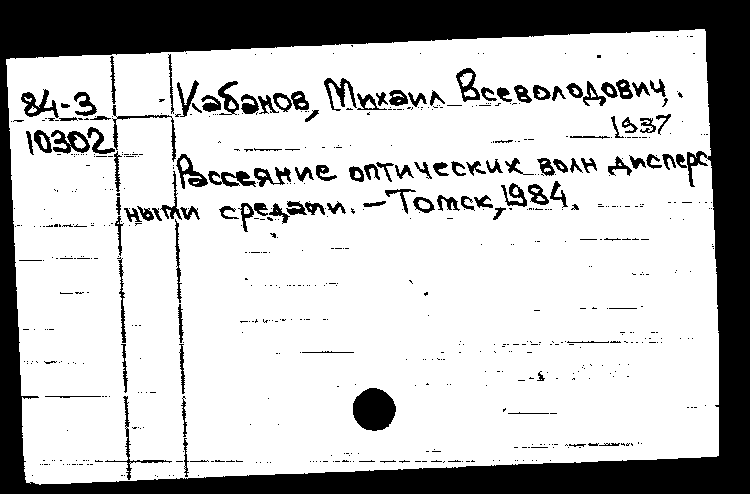 84-3
10302
Кабанов, Михаил Всеволодович.
1937
Рассеяние оптических волн дисперс-
ными средами. – Томск, 1984.